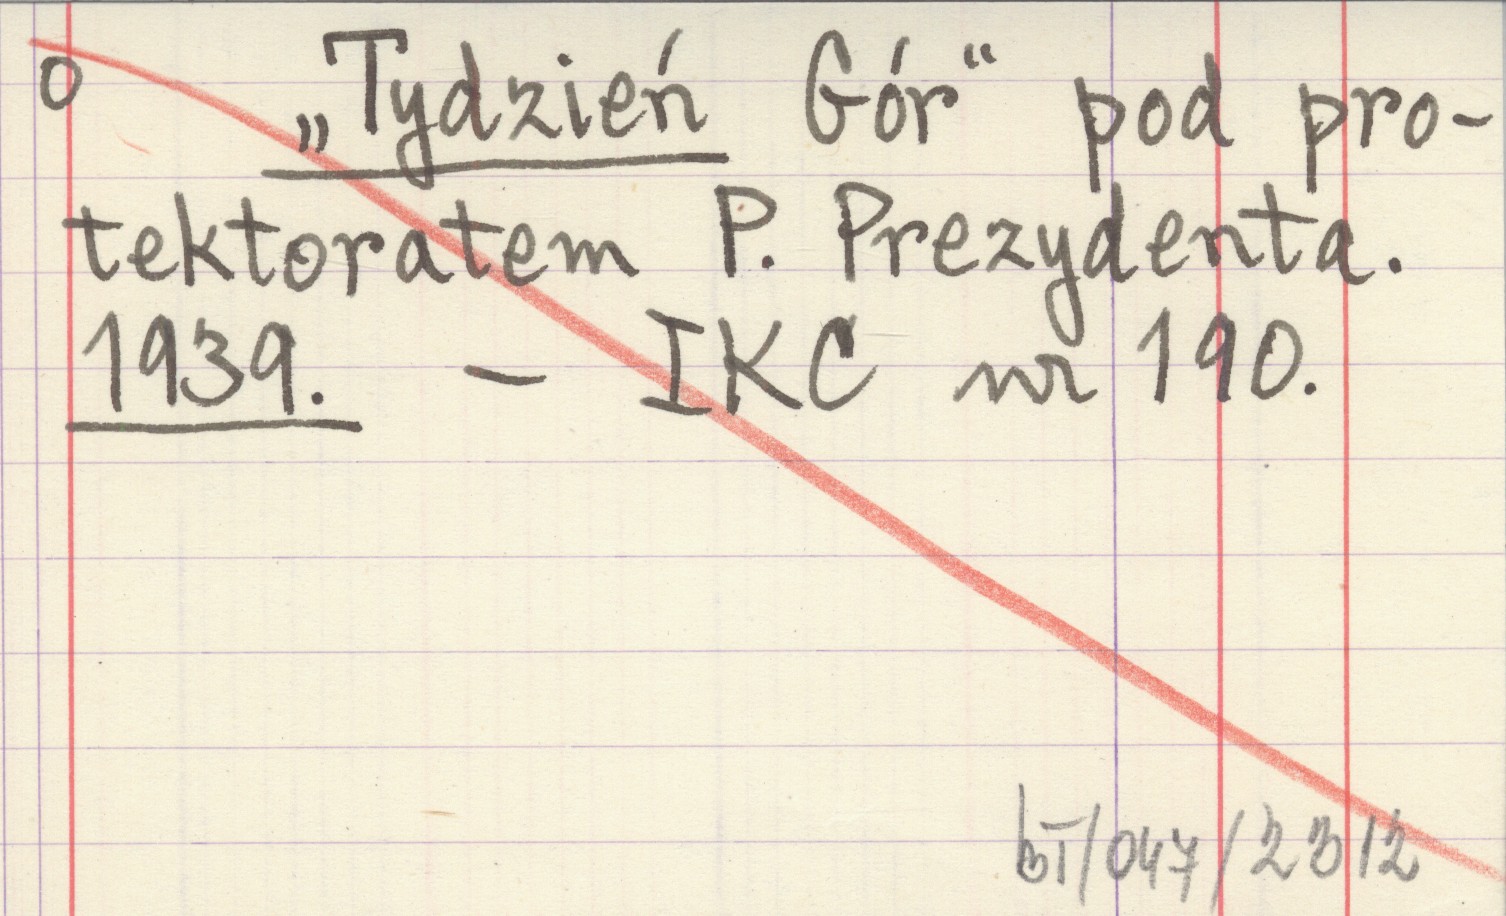 o „Tydzień Gór“ pod pro-
tektoratem P. Prezydenta.
1939. — IKC nr 190.
bT/047/2312